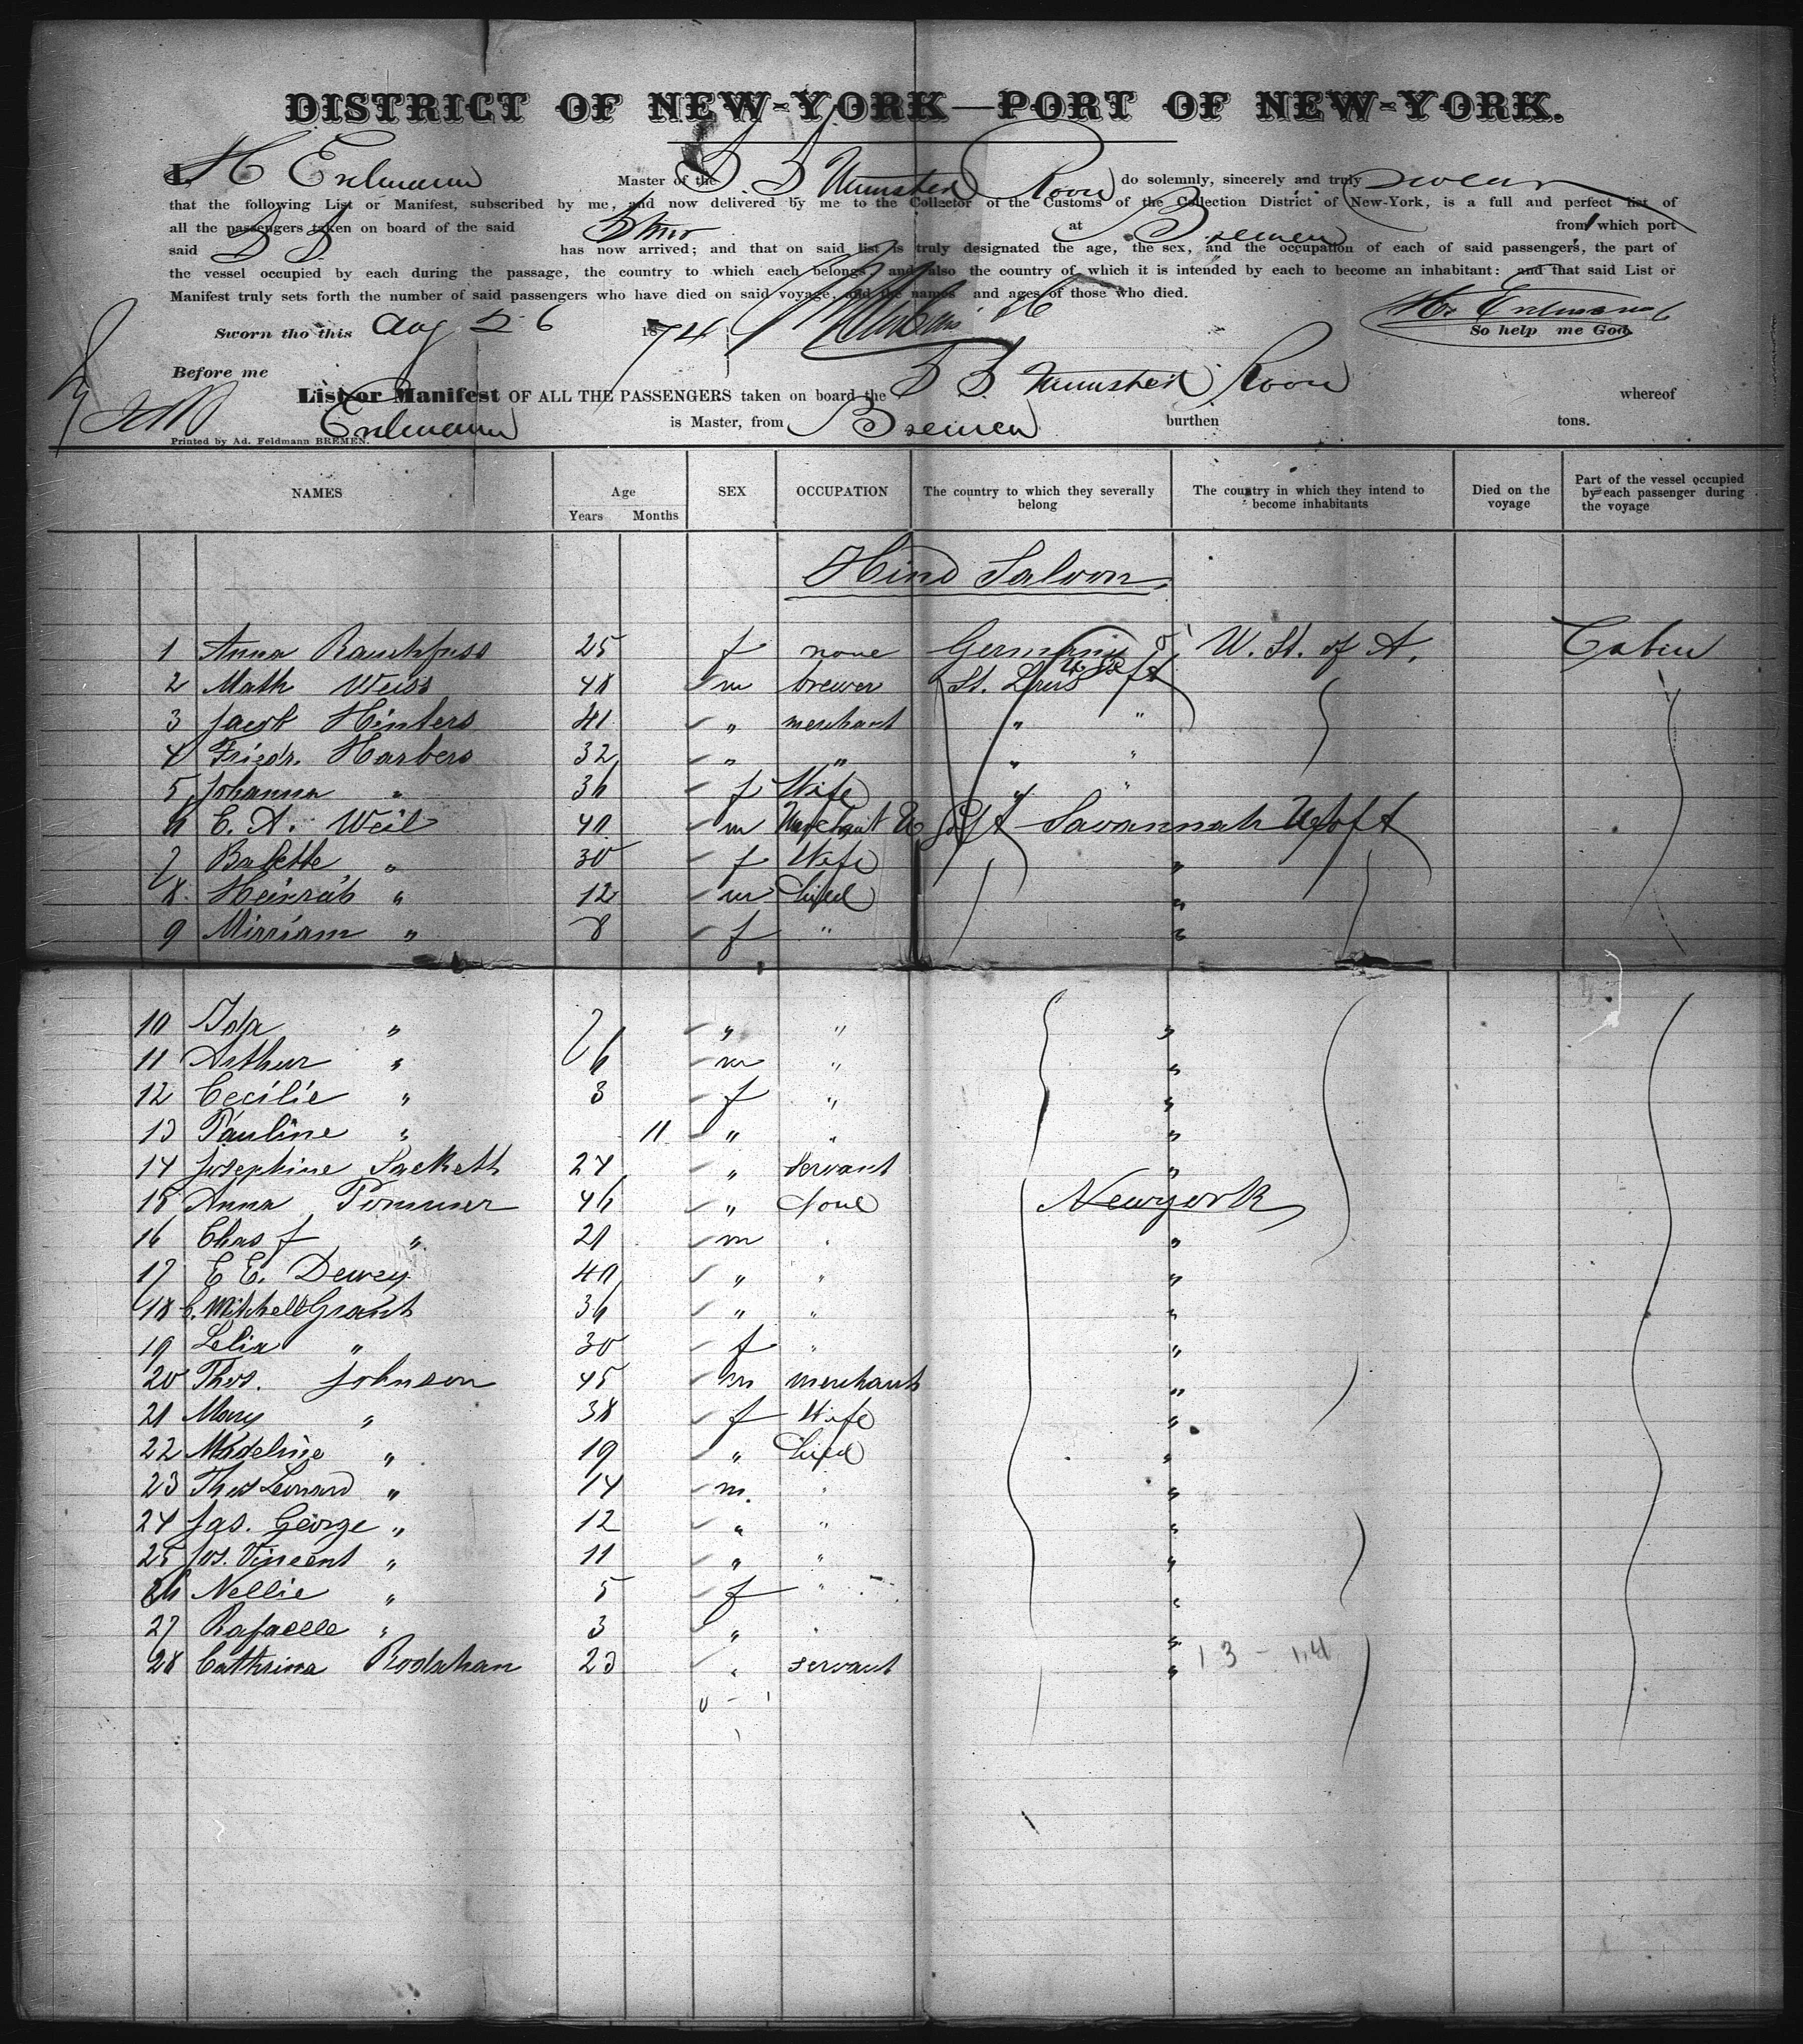 DISTRICT OF NEW-YORK—PORT OF NEW-YORK.
I, H Erdmann Master of the S S Minister Roon do solemnly, sincerely and truly swear
that the following List or Manifest, subscribed by me, and now delivered by me to the Collector of the Customs of the Collection District of New-York, is a full and perfect list of
all the passengers taken on board of the said Stmr at Bremen from which port
said S S has now arrived; and that on said list is truly designated the age, the sex, and the occupation of each of said passengers, the part of
the vessel occupied by each during the passage, the country to which each belongs, and also the country of which it is intended by each to become an inhabitant: and that said List or
Manifest truly sets forth the number of said passengers who have died on said voyage, and the names and ages of those who died.
H. Erdmann
Sworn tho this Aug 26 1874 So help me God
Before me
List or Manifest OF ALL THE PASSENGERS taken on board the S S Minister Roon whereof
Erdmann is Master, from Bremen burthen tons.
Printed by Ad. Feldmann BREMEN.
NAMES Age Years Months SEX OCCUPATION The country to which they severally belong The country in which they intend to become inhabitants Died on the voyage Part of the vessel occupied by each passenger during the voyage
Hind Saloon
1 Anna Rauchfuss 25 f none Germany U. St. of A. Cabin
2 Math Weiss 48 m brewer St. Louis
3 Jacob Hinters 41 " merchant " "
4 Friedr. Harbers 32 " " " "
5 Johanna " 36 f Wife " "
6 E. A. Weil 40 m Merchant Savannah U S of A
7 Babette " 30 f Wife "
8 Heinrich " 12 m Child "
9 Mirriam " 8 f " "
10 Ida " 7 " " "
11 Arthur " 6 m " "
12 Cecilie " 3 f " "
13 Pauline " 11 " " "
14 Josephine Sackett 24 " servant "
15 Anna Pommer 46 " None Newyork
16 Chas f " 21 m " "
17 E E. Dewey 40 " " "
18 C. Mitchell Grant 36 " " "
19 Lelia " 30 f " "
20 Thos. Johnson 45 m merchant "
21 Mary " 38 f Wife "
22 Madeline " 19 " Child "
23 Thos Leonard " 14 m " "
24 Jas. George " 12 " " "
25 Jos. Vincent " 11 " " "
26 Nellie " 5 f " "
27 Rafaelle " 3 " " "
28 Cathrina Rodahan 23 " servant " 13 - 14